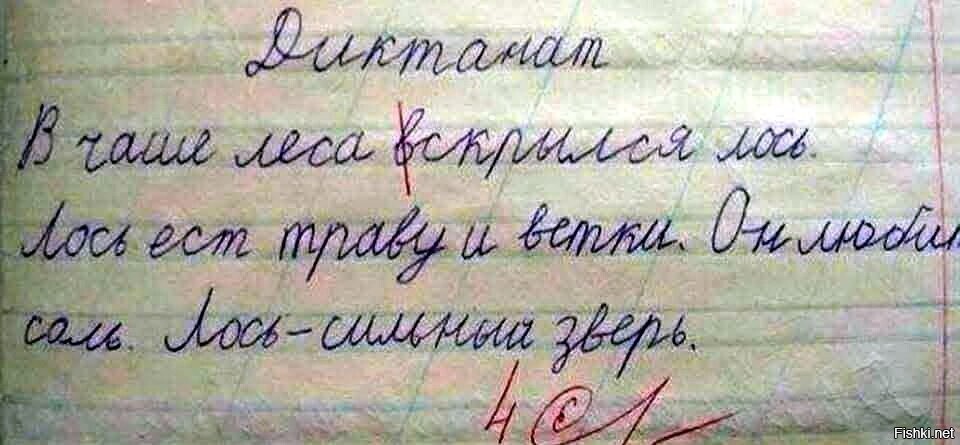 Диктанат
В чаше леса вскрылся лось.
Лось ест траву и ветки. Он любит
соль. Лось-сильный зверь.
4
Fishki.net